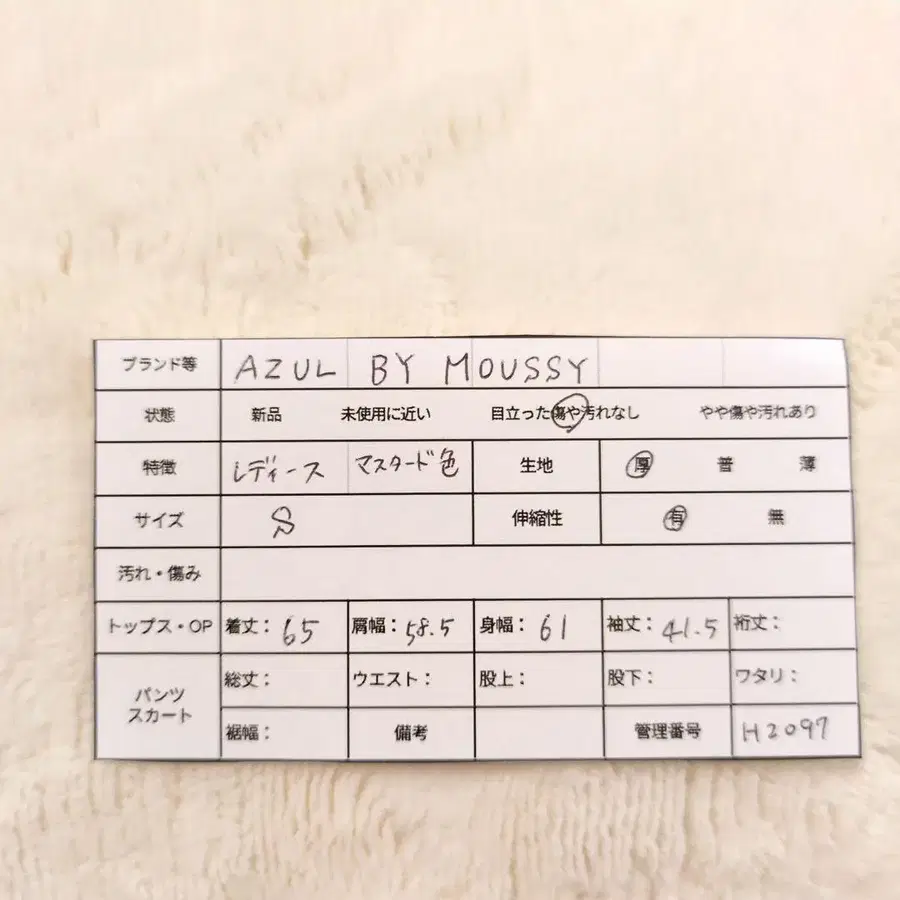 ブランド等 AZUL BY MOUSSY
状態 新品 未使用に近い 目立った傷や汚れなし やや傷や汚れあり
特徴 レディース マスタード色 生地 厚 普 薄
サイズ S 伸縮性 有 無
汚れ・傷み
トップス・OP 着丈：65 肩幅：58.5 身幅：61 袖丈：41.5 裄丈：
パンツ スカート 総丈： ウエスト： 股上： 股下： ワタリ：
裾幅： 備考 管理番号 H2097